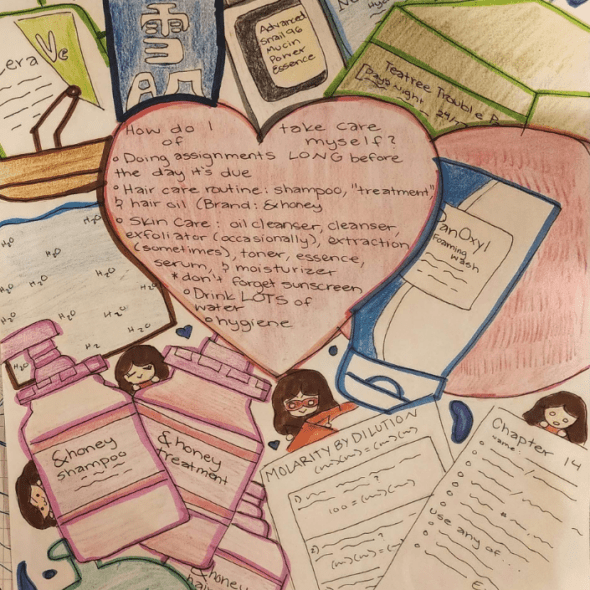 era
Ve
雪
Advanced
Snail 96
Mucin
Power
Essence
Teatree Trouble
Days
Night
How do I take care
of myself?
Doing assignments LONG before
the day it's due
Hair care routine: shampoo, "treatment"
& hair oil (Brand: &honey
Skin Care: oil cleanser, cleanser,
exfoliator (occasionally), extraction
(sometimes), toner, essence,
serum, & moisturizer
*don't forget sunscreen
Drink LOTS of
water
hygiene
PanOxyl
Foaming
wash
H2O
H2O
H2O
H2O
H2O
H2O
H2O
H2O
H2O
H2O
&honey
shampoo
&honey
treatment
&honey
MOLARITY BY DILUTION
(m)(m)=(m)(m)
1)
?
100=(m)(m)
2)
?
(m)(m)=
Chapter 14
name:
use any of...